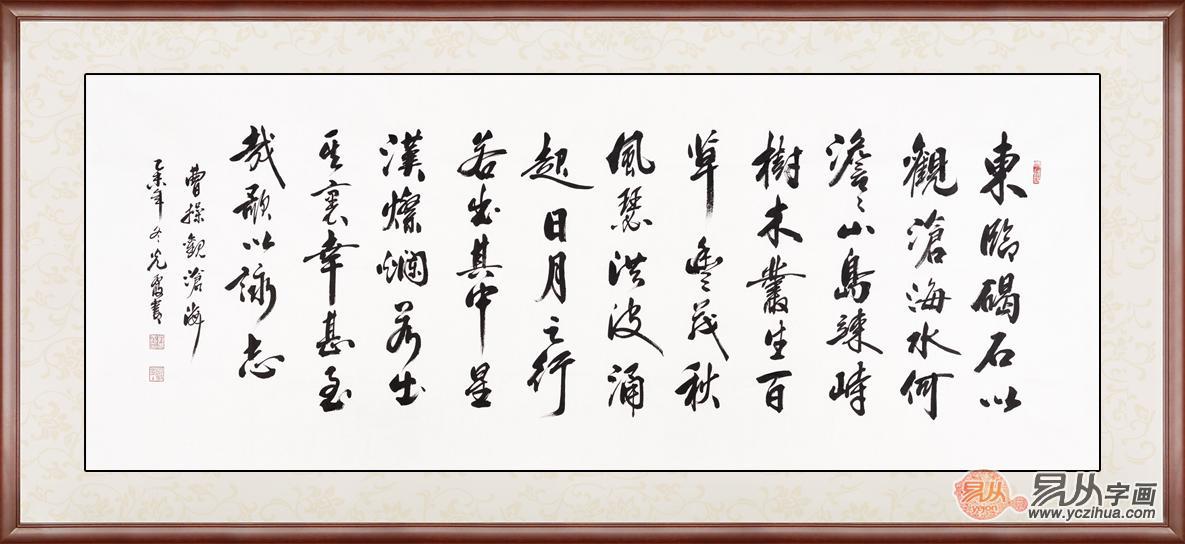 東臨碣石以
觀滄海水何
澹々山島竦峙
樹木叢生百
草豐茂秋
風瑟洪波涌
起日月之行
若出其中星
漢燦爛若出
其裏幸甚至
哉歌以詠志
曹操觀滄海
乙未年冬光霞書
易从
易从字画
www.yczihua.com